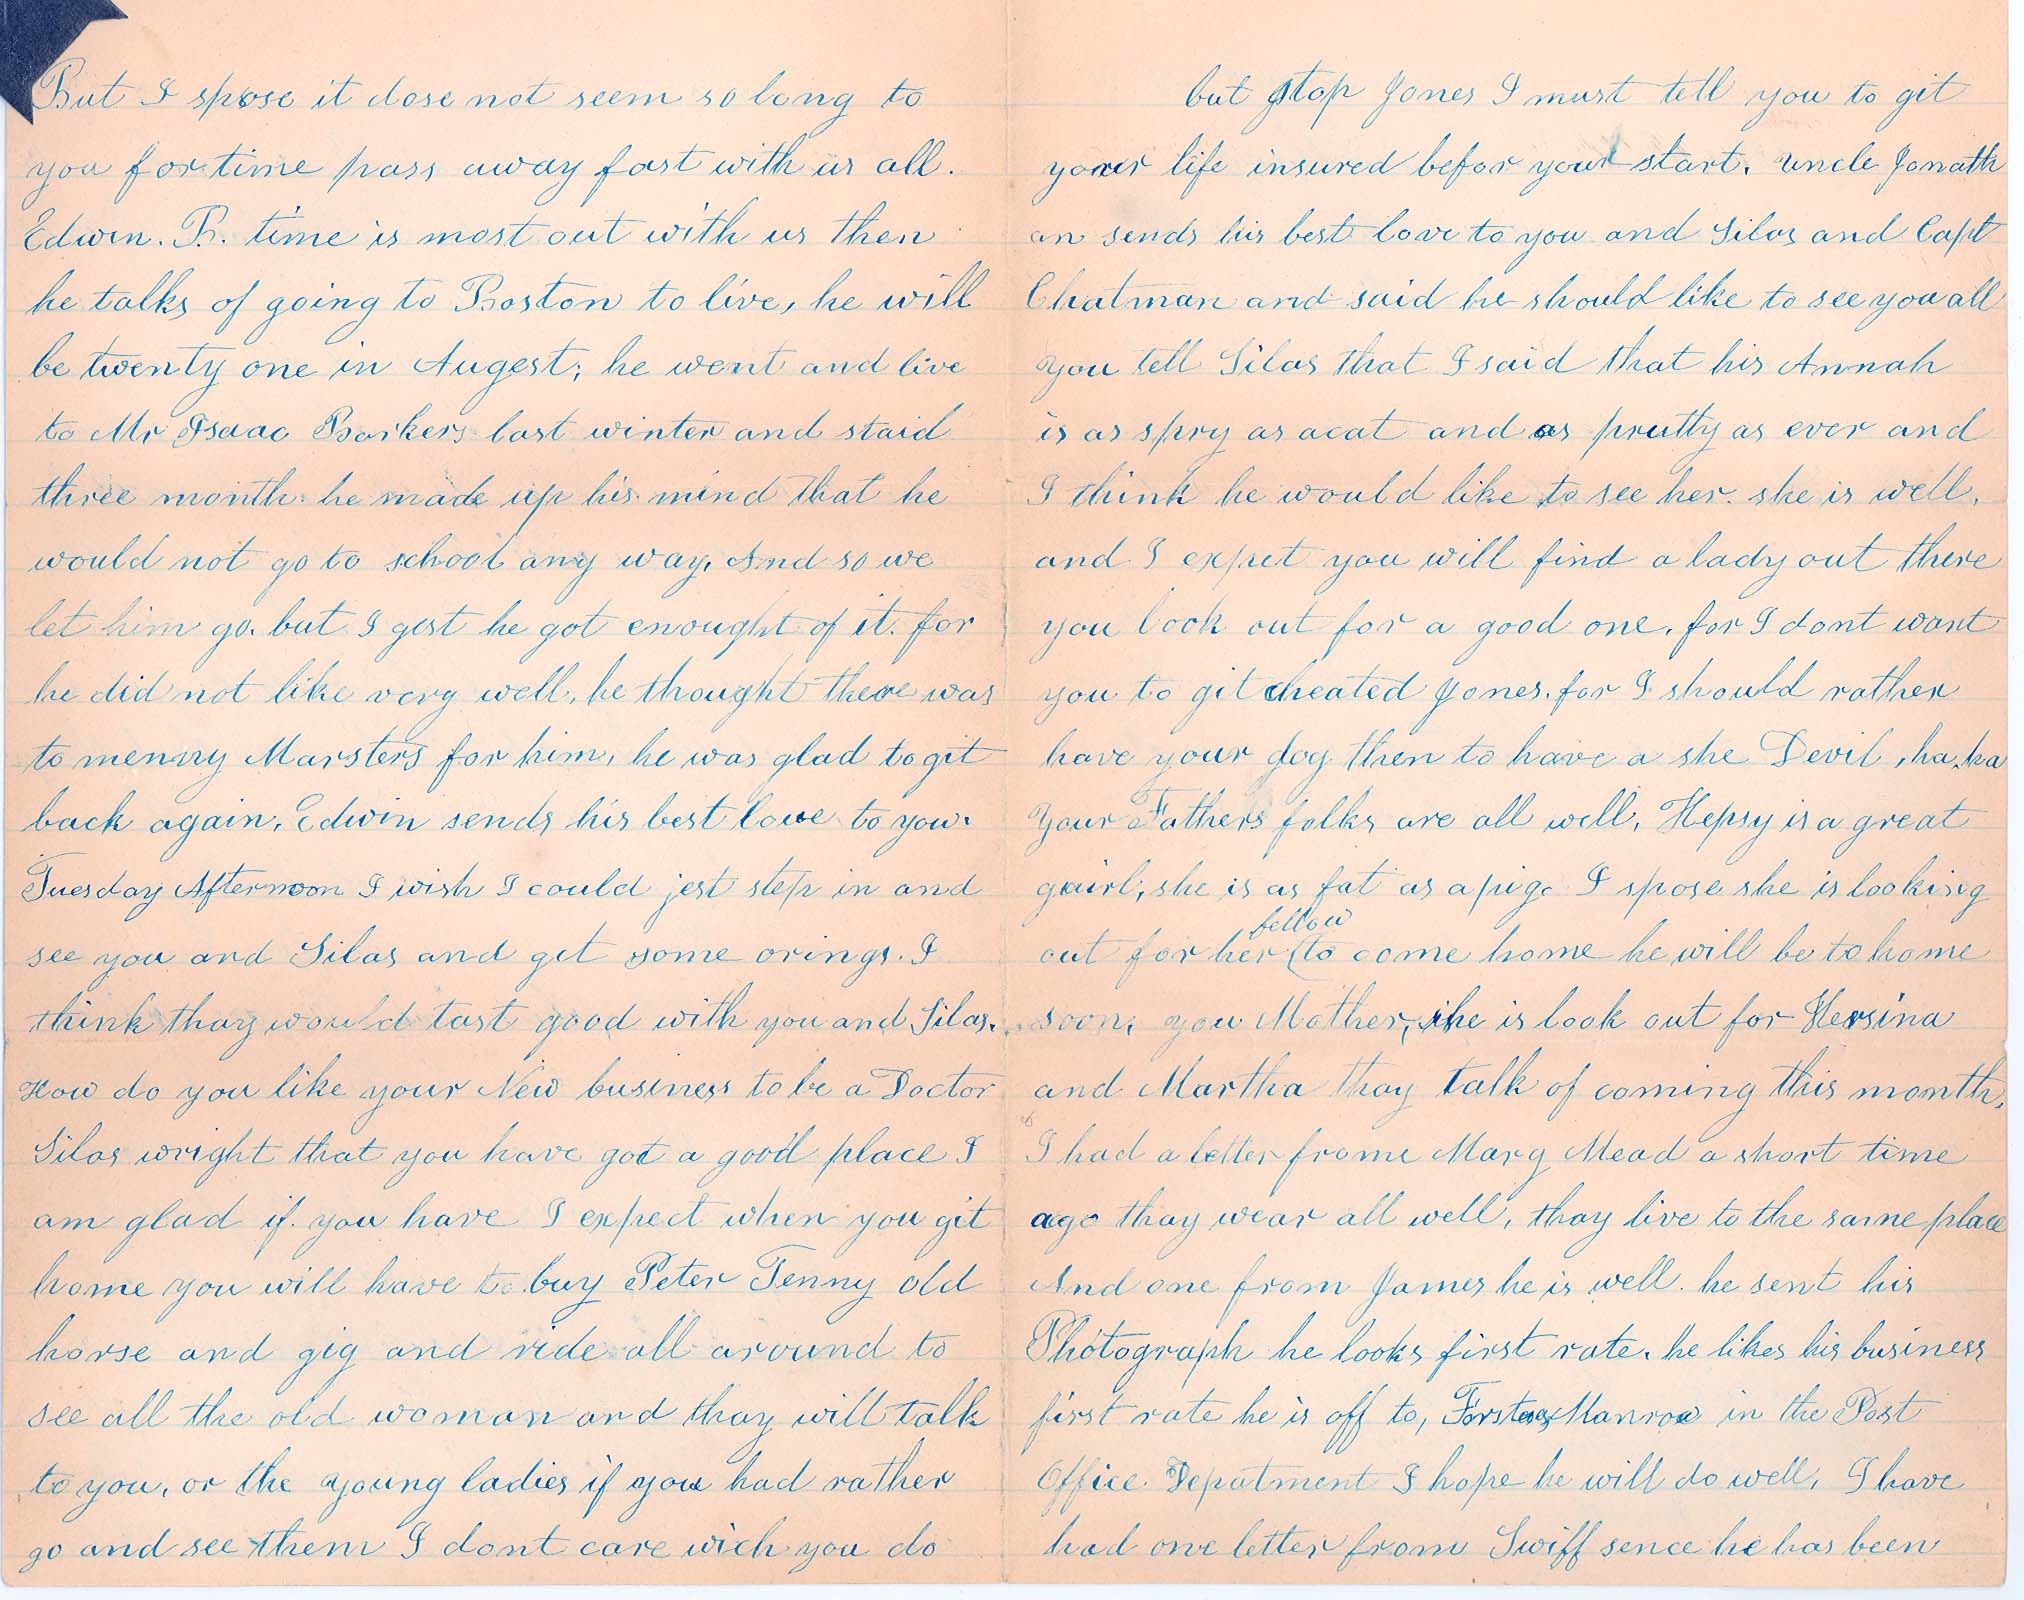 But I spose it dose not seem so long to
you for time pass away fast with us all.
Edwin. B. time is most out with us then
he talks of going to Boston to live, he will
be twenty one in Augest; he went and live
to Mr Isaac Barkers last winter and staid
three month. he made up his mind that he
would not go to school any way. And so we
let him go. but I gest he got enought of it. for
he did not like very well, he thought there was
to menny Marsters for him, he was glad to git
back again. Edwin sends his best love to you.
Tuesday Afternoon I wish I could jest step in and
see you and Silas and get some orings. I
think thay would tast good with you and Silas.
How do you like your New business to be a Doctor
Silas wright that you have got a good place I
am glad if you have I expect when you git
home you will have to buy Peter Tenny old
horse and gig and ride all around to
see all the old woman and thay will talk
to you, or the young ladies if you had rather
go and see them I dont care wich you do
but stop Jones I must tell you to git
your life insured befor your start. uncle Jonath
an sends his best love to you and Silas and Capt
Chatman and said he should like to see you all
you tell Silas that I said that his Annah
is as spry as a cat and as prutty as ever and
I think he would like to see her. she is well.
and I expect you will find a lady out there
you look out for a good one. for I dont want
you to git cheated Jones. for I should rather
have your dog then to have a she Devil, ha. ha
Your Fathers folks are all well, Hepsy is a great
gairl, she is as fat as a pig. I spose she is looking
out for her fellow to come home he will be to home
soon, you Mother, she is look out for Hersina
and Martha thay talk of coming this month.
I had a letter frome Mary Mead a short time
ago thay wear all well, thay live to the same place
And one from James he is well. he sent his
Photograph he looks first rate. he likes his business
first rate he is off to, Manroe in the Post
Office Depatment I hope he will do well, I have
had one letter from Swiff sence he has been